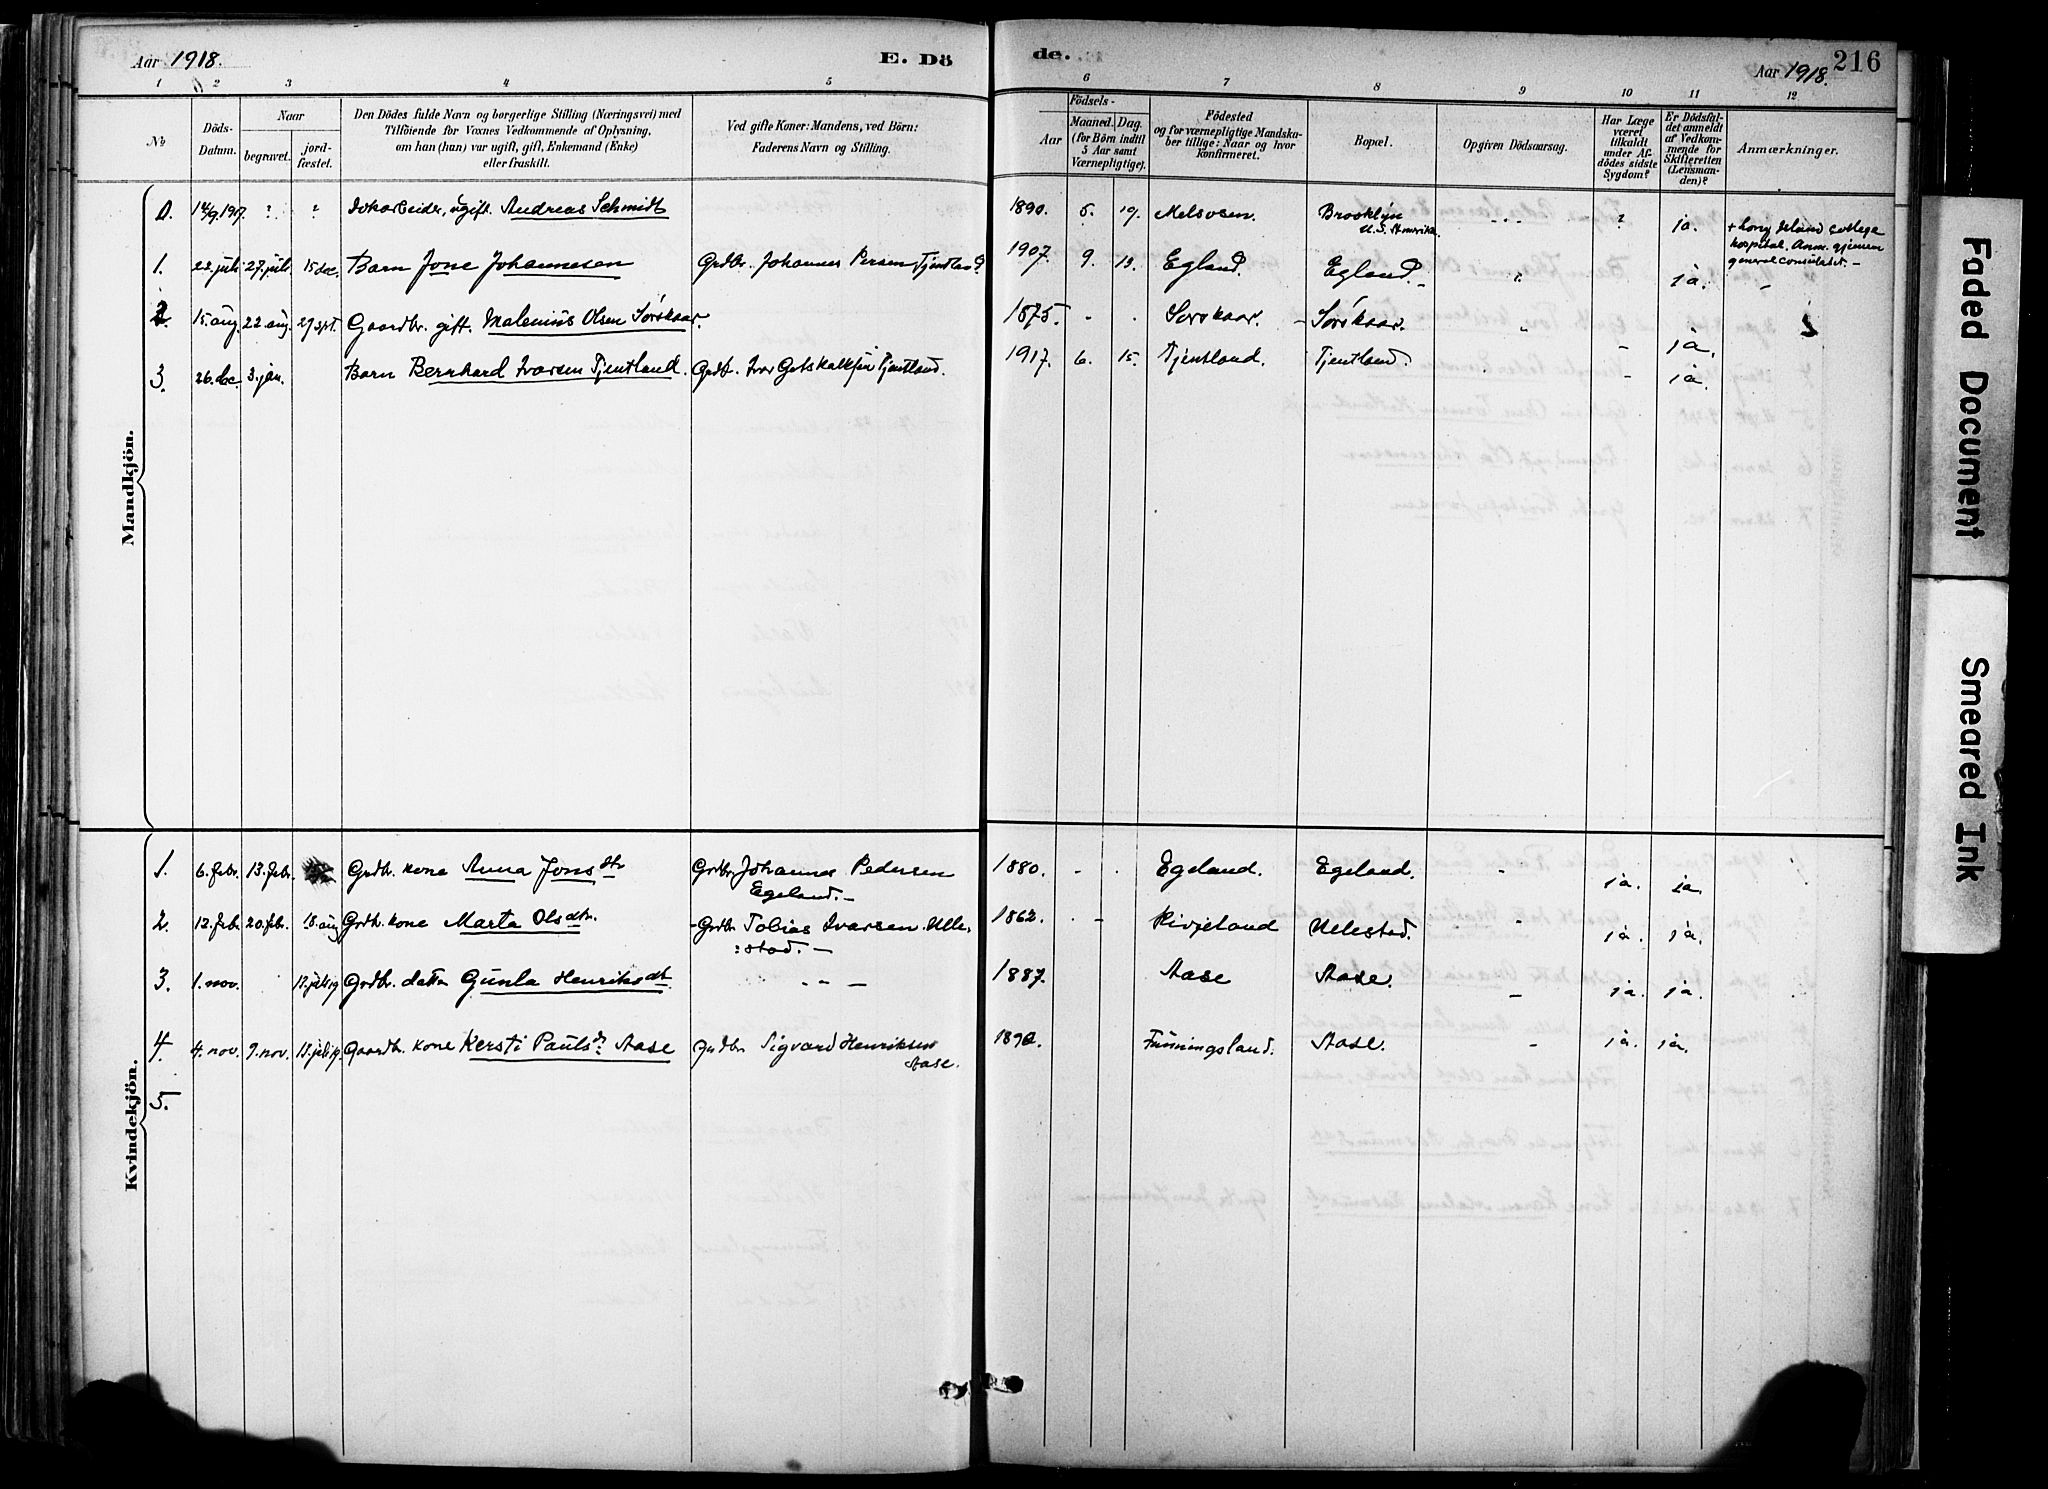 Aar 1918. E. Dö de. Aar 1918. 216
1 2 3 4 5 6 7 8 9 10 11 12
No. Döds-Datum. Naar begravet. jordfæstet. Den Dödes fulde Navn og borgerlige Stilling (Næringsvei) med Tilföiende for Voxnes Vedkommende af Oplysning, om han (hun) var ugift, gift, Enkemand (Enke) eller fraskilt. Ved gifte Koner: Mandens, ved Börn: Faderens Navn og Stilling. Födsels- Aar Maaned. Dag. (for Börn indtil 5 Aar samt Værnepligtige). Födested og for værnepligtige Mandskaber tillige: Naar og hvor konfirmeret. Bopæl. Opgiven Dödsaarsag. Har Læge været tilkaldt under Afdödes sidste Sygdom? Er Dödsfaldet anmeldt af Vedkommende for Skifteretten (Lensmanden)? Anmærkninger.
Mandkjön.
0. 14/9 1917. " " Dokarbeider, ugift. Andreas Schmidt 1890. 5. 19. Melsosen. Brooklyn U.S. Amerika. " ? ja. + Long Island College hospital. Anm. gjennem generalconsulatet. -
1. 22. juli 27. juli. 15 dec. Barn Jone Johannesen Grdbr. Johannes Persen Tjentland 1907. 9. 19. Egland. Egland. - " ja. "
2. 15. aug. 22 aug. 29 spt. Gaardbr. gift. Malenius Olsen Sörskaar. 1875. - . Sorskaar. - Sörskaar. " - ja.
3. 26. dec. 3. jan. Barn Bernhard Ivarsen Tjentland. Grdb. Ivar Gotskalksen Tjentland. 1917. 6. 15. Tjentland. Tjentland. - ja.
Kvindekjön.
1. 6. febr. 13. febr. Grdbr. kone Anna Jonsdtr Grdbr. Johannes Pedersen Egeland. - 1880. - . Egeland. Egeland. - ja. ja.
2. 12. febr. 20. febr. 18. aug Grdb. kone Marta Olsdtr. - Grdbr Tobias Ivarsen Ulle:stad. - 1862. . - Rivjeland Ullestad. ja. ja.
3. 1. nov. 12. juli 19 Grdbr. datter Gunla Henriksdt " - - 1887. Aase Aase. - ja. ja.
4. 4. nov. 9. nov. 13. juli 19. Gaardb. kone Kersti Paulsdr Aase Grdbr Sigvard Henriksen Aase. 1892. Fünningsland. Aase. - ja. ja.
5.
Faded Document
Smeared Ink